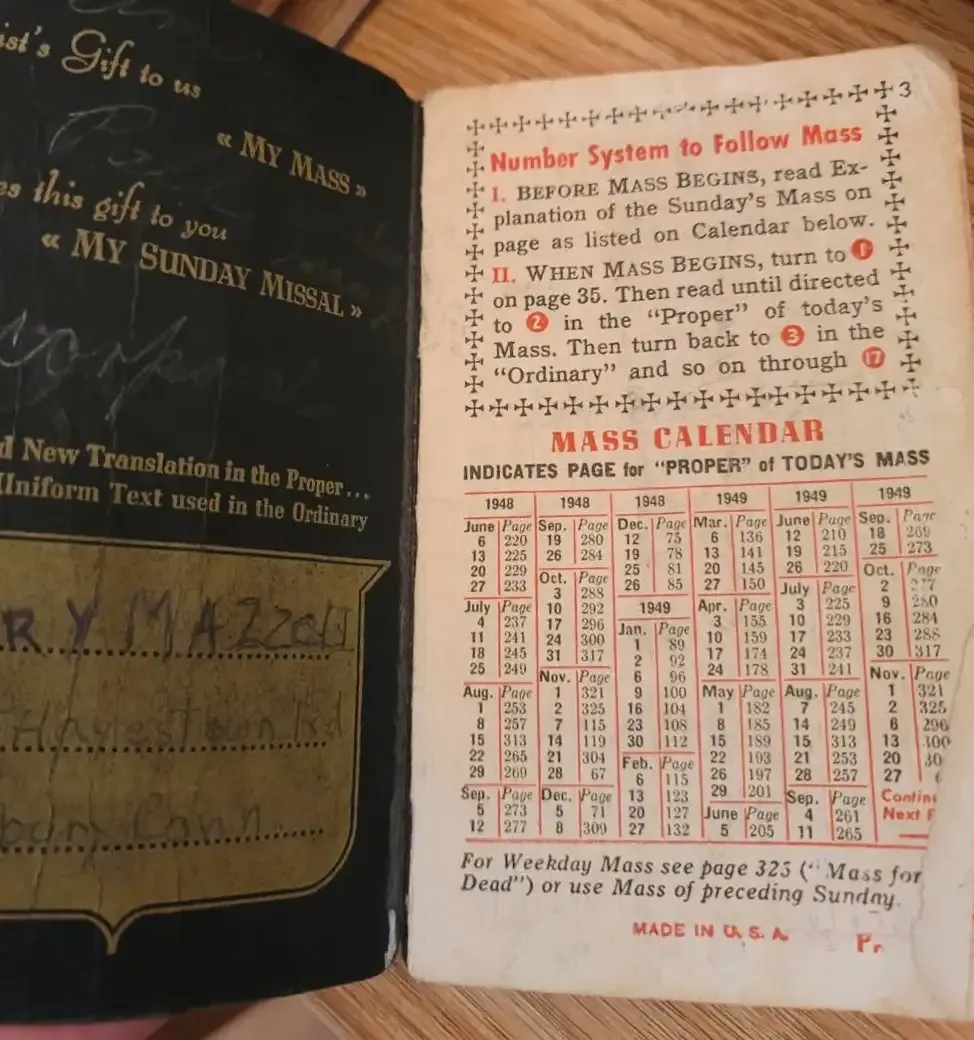 ist's Gift to us
« MY MASS »
es this gift to you
« MY SUNDAY MISSAL »
d New Translation in the Proper...
Uniform Text used in the Ordinary
RY MAZZ
Conn
3
Number System to Follow Mass
I. BEFORE MASS BEGINS, read Ex-
planation of the Sunday's Mass on
page as listed on Calendar below.
II. WHEN MASS BEGINS, turn to 1
on page 35. Then read until directed
to 2 in the "Proper" of today's
Mass. Then turn back to 3 in the
"Ordinary" and so on through 17
MASS CALENDAR
INDICATES PAGE for "PROPER" of TODAY'S MASS
1948
June Page
6 220
13 225
20 229
27 233
July Page
4 237
11 241
18 245
25 249
Aug. Page
1 253
8 257
15 313
22 265
29 269
Sep. Page
5 273
12 277
1948
Sep. Page
19 280
26 284
Oct. Page
3 288
10 292
17 296
24 300
31 317
Nov. Page
1 321
2 325
7 115
14 119
21 304
28 67
Dec. Page
5 71
8 309
1948
Dec. Page
12 75
19 78
25 81
26 85
1949
Jan. Page
1 89
2 92
6 96
9 100
16 104
23 108
30 112
Feb. Page
6 115
13 123
20 127
27 132
1949
Mar. Page
6 136
13 141
20 145
27 150
Apr. Page
3 155
10 159
17 174
24 178
May Page
1 182
8 185
15 189
22 193
26 197
29 201
June Page
5 205
1949
June Page
12 210
19 215
26 220
July Page
3 225
10 229
17 233
24 237
31 241
Aug. Page
7 245
14 249
15 313
21 253
28 257
Sep. Page
4 261
11 265
1949
Sep. Page
18 269
25 273
Oct. Page
2
9 280
16 284
23 288
30 317
Nov. Page
1 321
2 325
6 296
13 300
20 30
27
Contin
Next P
For Weekday Mass see page 325 ("Mass for
Dead") or use Mass of preceding Sunday.
MADE IN U. S. A.
Pr